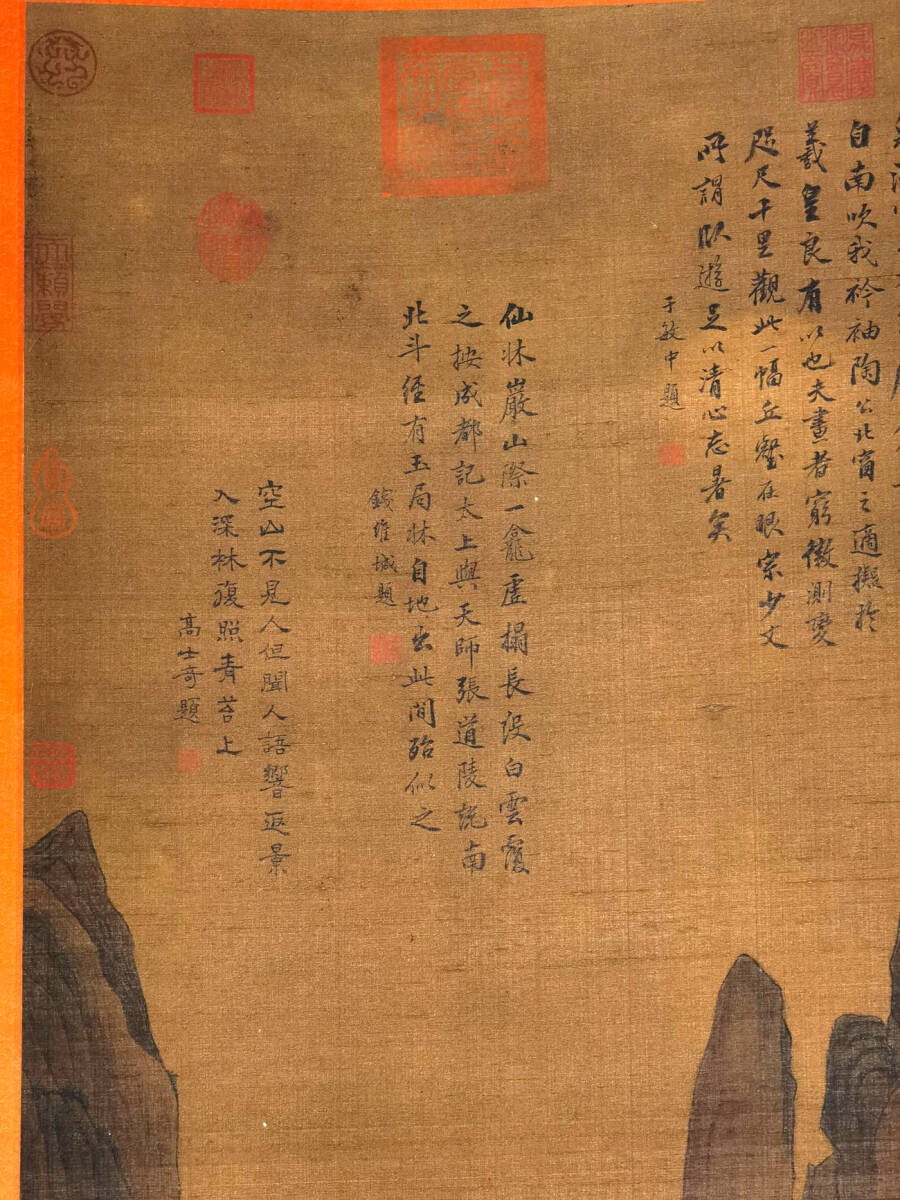 自南吹我衿袖陶公北窗之適擬於
羲皇良有以也夫畫者窮微測變
咫尺千里觀此一幅丘壑在眼宗少文
所謂臥遊足以清心忘暑矣
于敏中題
仙牀巖山際一龕虛榻長設白雲覆
之按成都記太上與天師張道陵説南
北斗經有玉局牀自地出此間殆似之
錢維城題
空山不見人但聞人語響返景
入深林復照青苔上
高士奇題